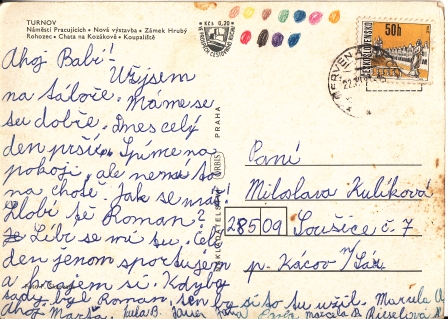 TURNOV
Náměstí Pracujících • Nová výstavba • Zámek Hrubý
Rohozec • Chata na Kozákově • Koupaliště
Kčs 0,20
Ahoj Babi!
Už jsem
na táboře. Máme se
tu dobře. Dnes celý
den prší. Spíme na
pokoji, ale není to
na chatě. Jak se máš?
Zlobí tě Roman?
Líbí se mi tu. Celý
den jenom sportujem
a hrajem si. Kdyby
tady byl Roman, ten by si to tu užil.
Ahoj
50h
ČESKOSLOVENSKO
ČERVENÁ
ORBIS
PRAHA
Paní
Miloslava Kulíková
285 09 Soušice č. 7
p. Kácov n/Sáz.
Marcela